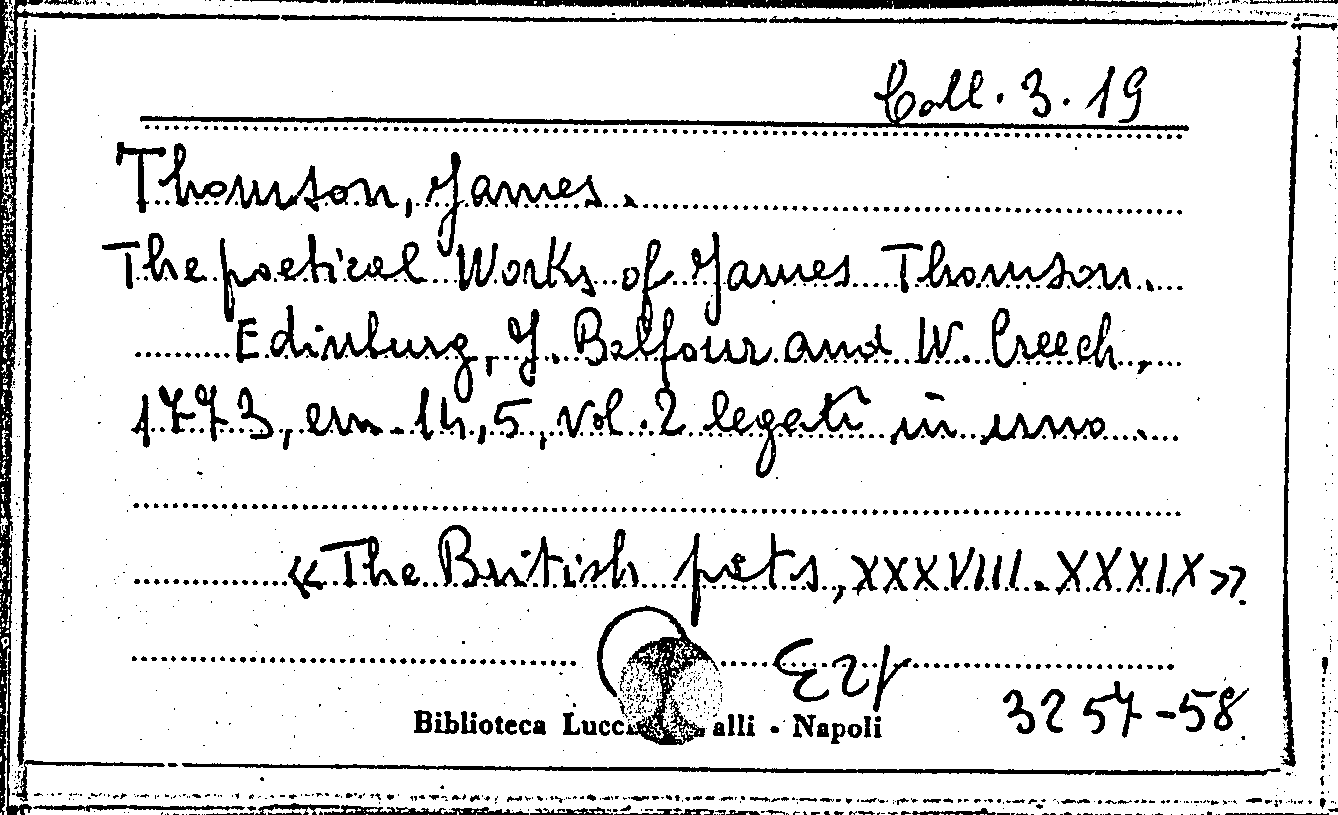 Coll. 3. 19
Thomson, James.
The poetical Works of James Thomson.
Edinburg, J. Balfour and W. Creech,
1773, cm. 14,5, vol. 2 legati in uno.
«The British poets, XXXVIII-XXXIX».
3257-58
Biblioteca Lucc alli - Napoli